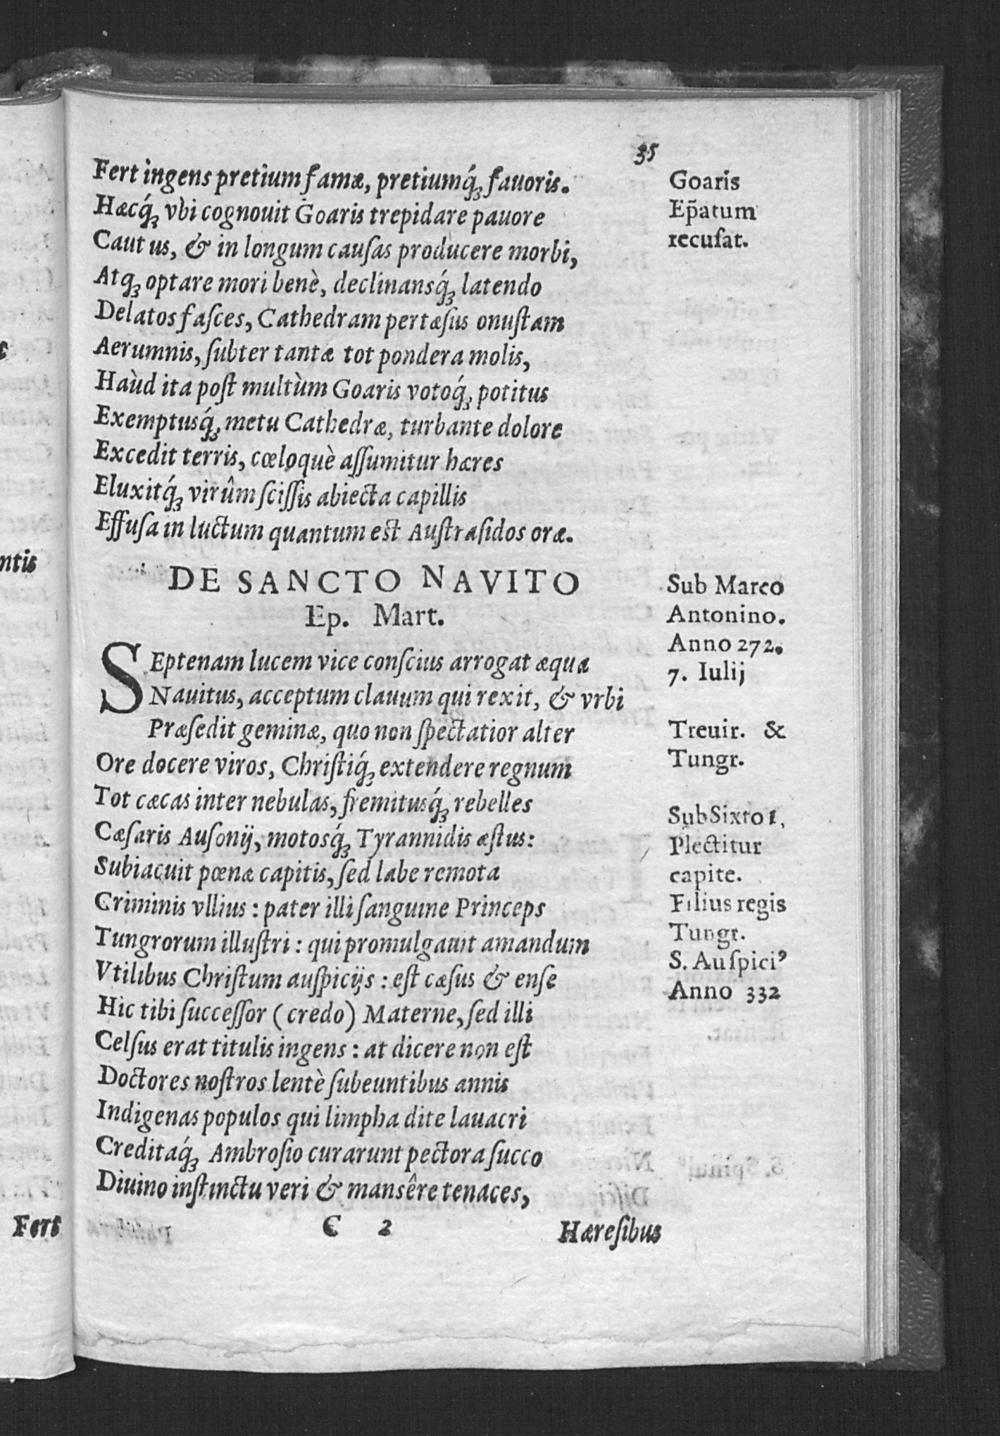 35
Fert ingens pretium famæ, pretiumq́ꝫ fauoris.
Hæcq́ꝫ vbi cognouit Goaris trepidare pauore
Cautus, & in longum cauſas producere morbi,
Atqꝫ optare mori benè, declinansq́ꝫ latendo
Delatos faſces, Cathedram pertæſus onuſtam
Aerumnis, ſubter tantæ tot pondera molis,
Haùd ita poſt multùm Goaris votoq́ꝫ potitus
Exemptusq́ꝫ metu Cathedræ, turbante dolore
Excedit terris, cœloquè aſſumitur hæres
Eluxitq́ꝫ virûm ſciſſis abiecta capillis
Effuſa in luctum quantum est Auſtraſidos oræ.
Goaris
Ep̃atum
recuſat.
DE SANCTO NAVITO
Ep. Mart.
SEptenam lucem vice conſcius arrogat æqua
Nauitus, acceptum clauum qui rexit, & vrbi
Præſedit geminæ, quo non ſpectatior alter
Ore docere viros, Chriſtiq́ꝫ extendere regnum
Tot cæcas inter nebulas, fremitusq́ꝫ rebelles
Cæſaris Auſonij, motosq́ꝫ Tyrannidis æſtus:
Subiacuit pœnæ capitis, ſed labe remota
Criminis vllius: pater illi ſanguine Princeps
Tungrorum illuſtri: qui promulgauit amandum
Vtilibus Chriſtum auſpicijs: eſt cæſus & enſe
Hic tibi ſucceſſor (credo) Materne, ſed illi
Celſus erat titulis ingens: at dicere non eſt
Doctores noſtros lentè ſubeuntibus annis
Indigenas populos qui limpha dite lauacri
Creditaq́ꝫ Ambroſio curarunt pectora ſucco
Diuino inſtinctu veri & manſêre tenaces,
Sub Marco
Antonino.
Anno 272.
7. Iulij
Treuir. &
Tungr.
Sub Sixto 1,
Plectitur
capite.
Filius regis
Tungr.
S. Auſpiciꝰ
Anno 332
C 2
Hæreſibus
ntis
Fert